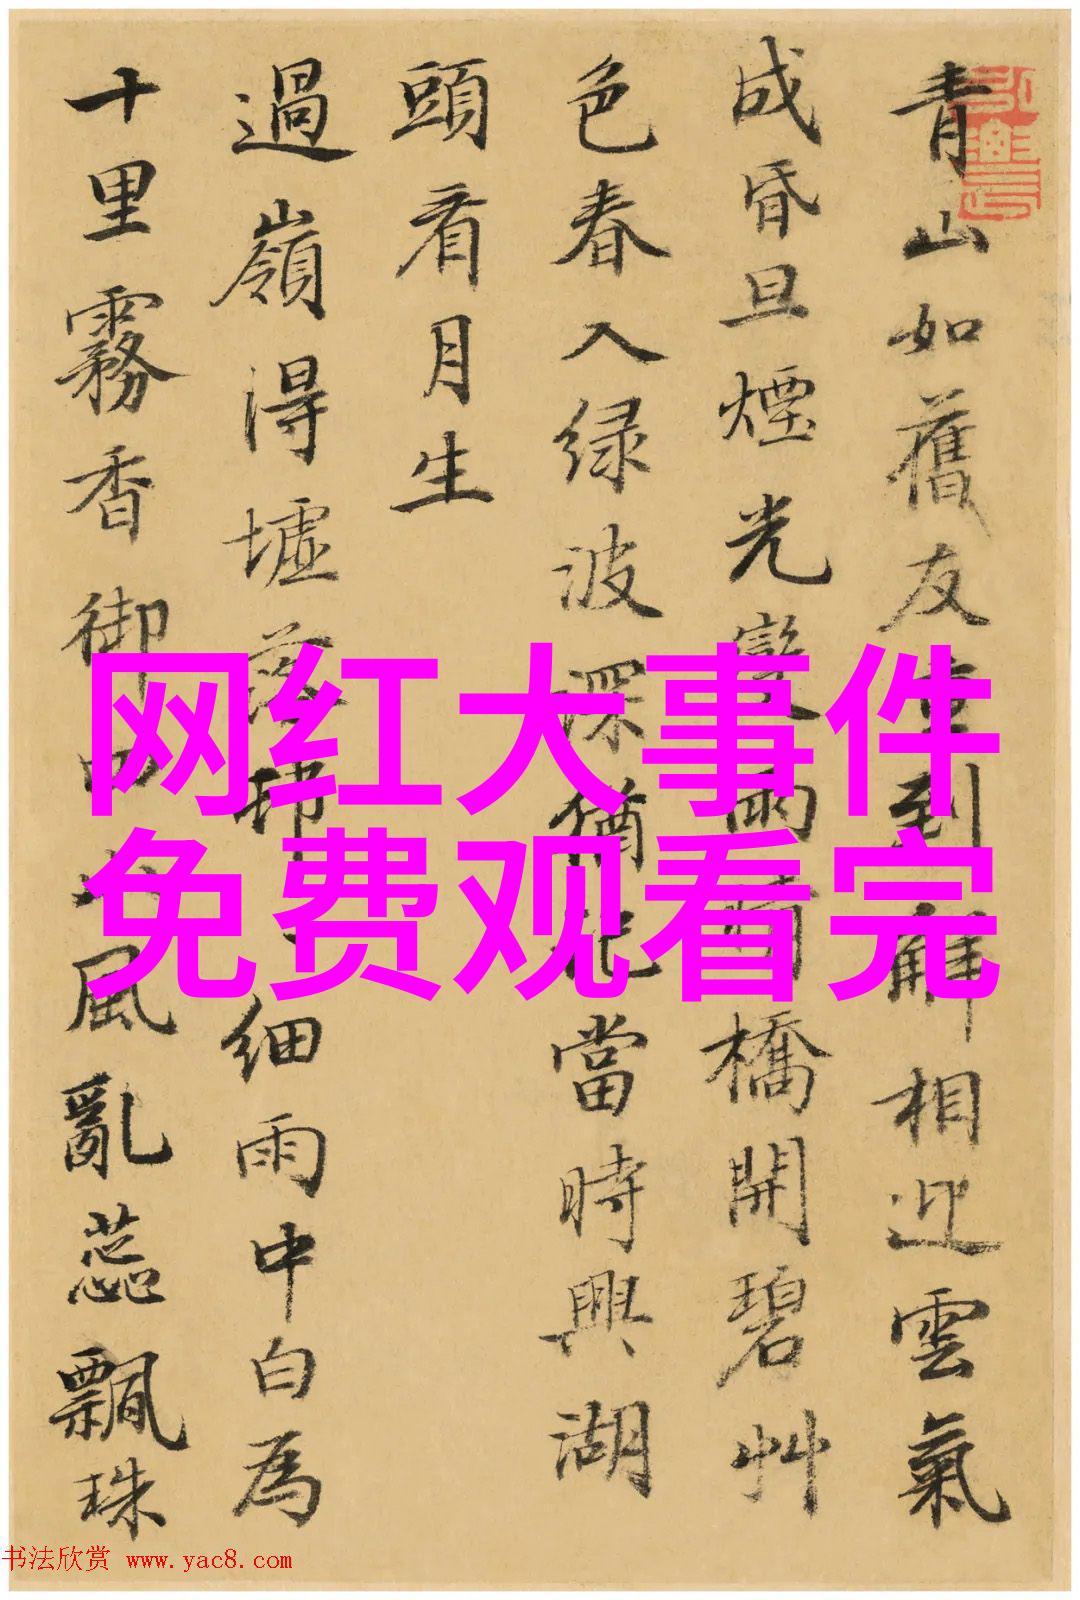 青山如舊友重到解相迎雲氣
成昏旦煙光變雨晴橋開碧艸
色春入绿波深猶記當時興湖
頭看月生
過嶺得墟落邨細雨中白為
十里霧香御四山風亂蕊飄珠
网红大事件
免费观看完
书法欣赏 www.yac8.com